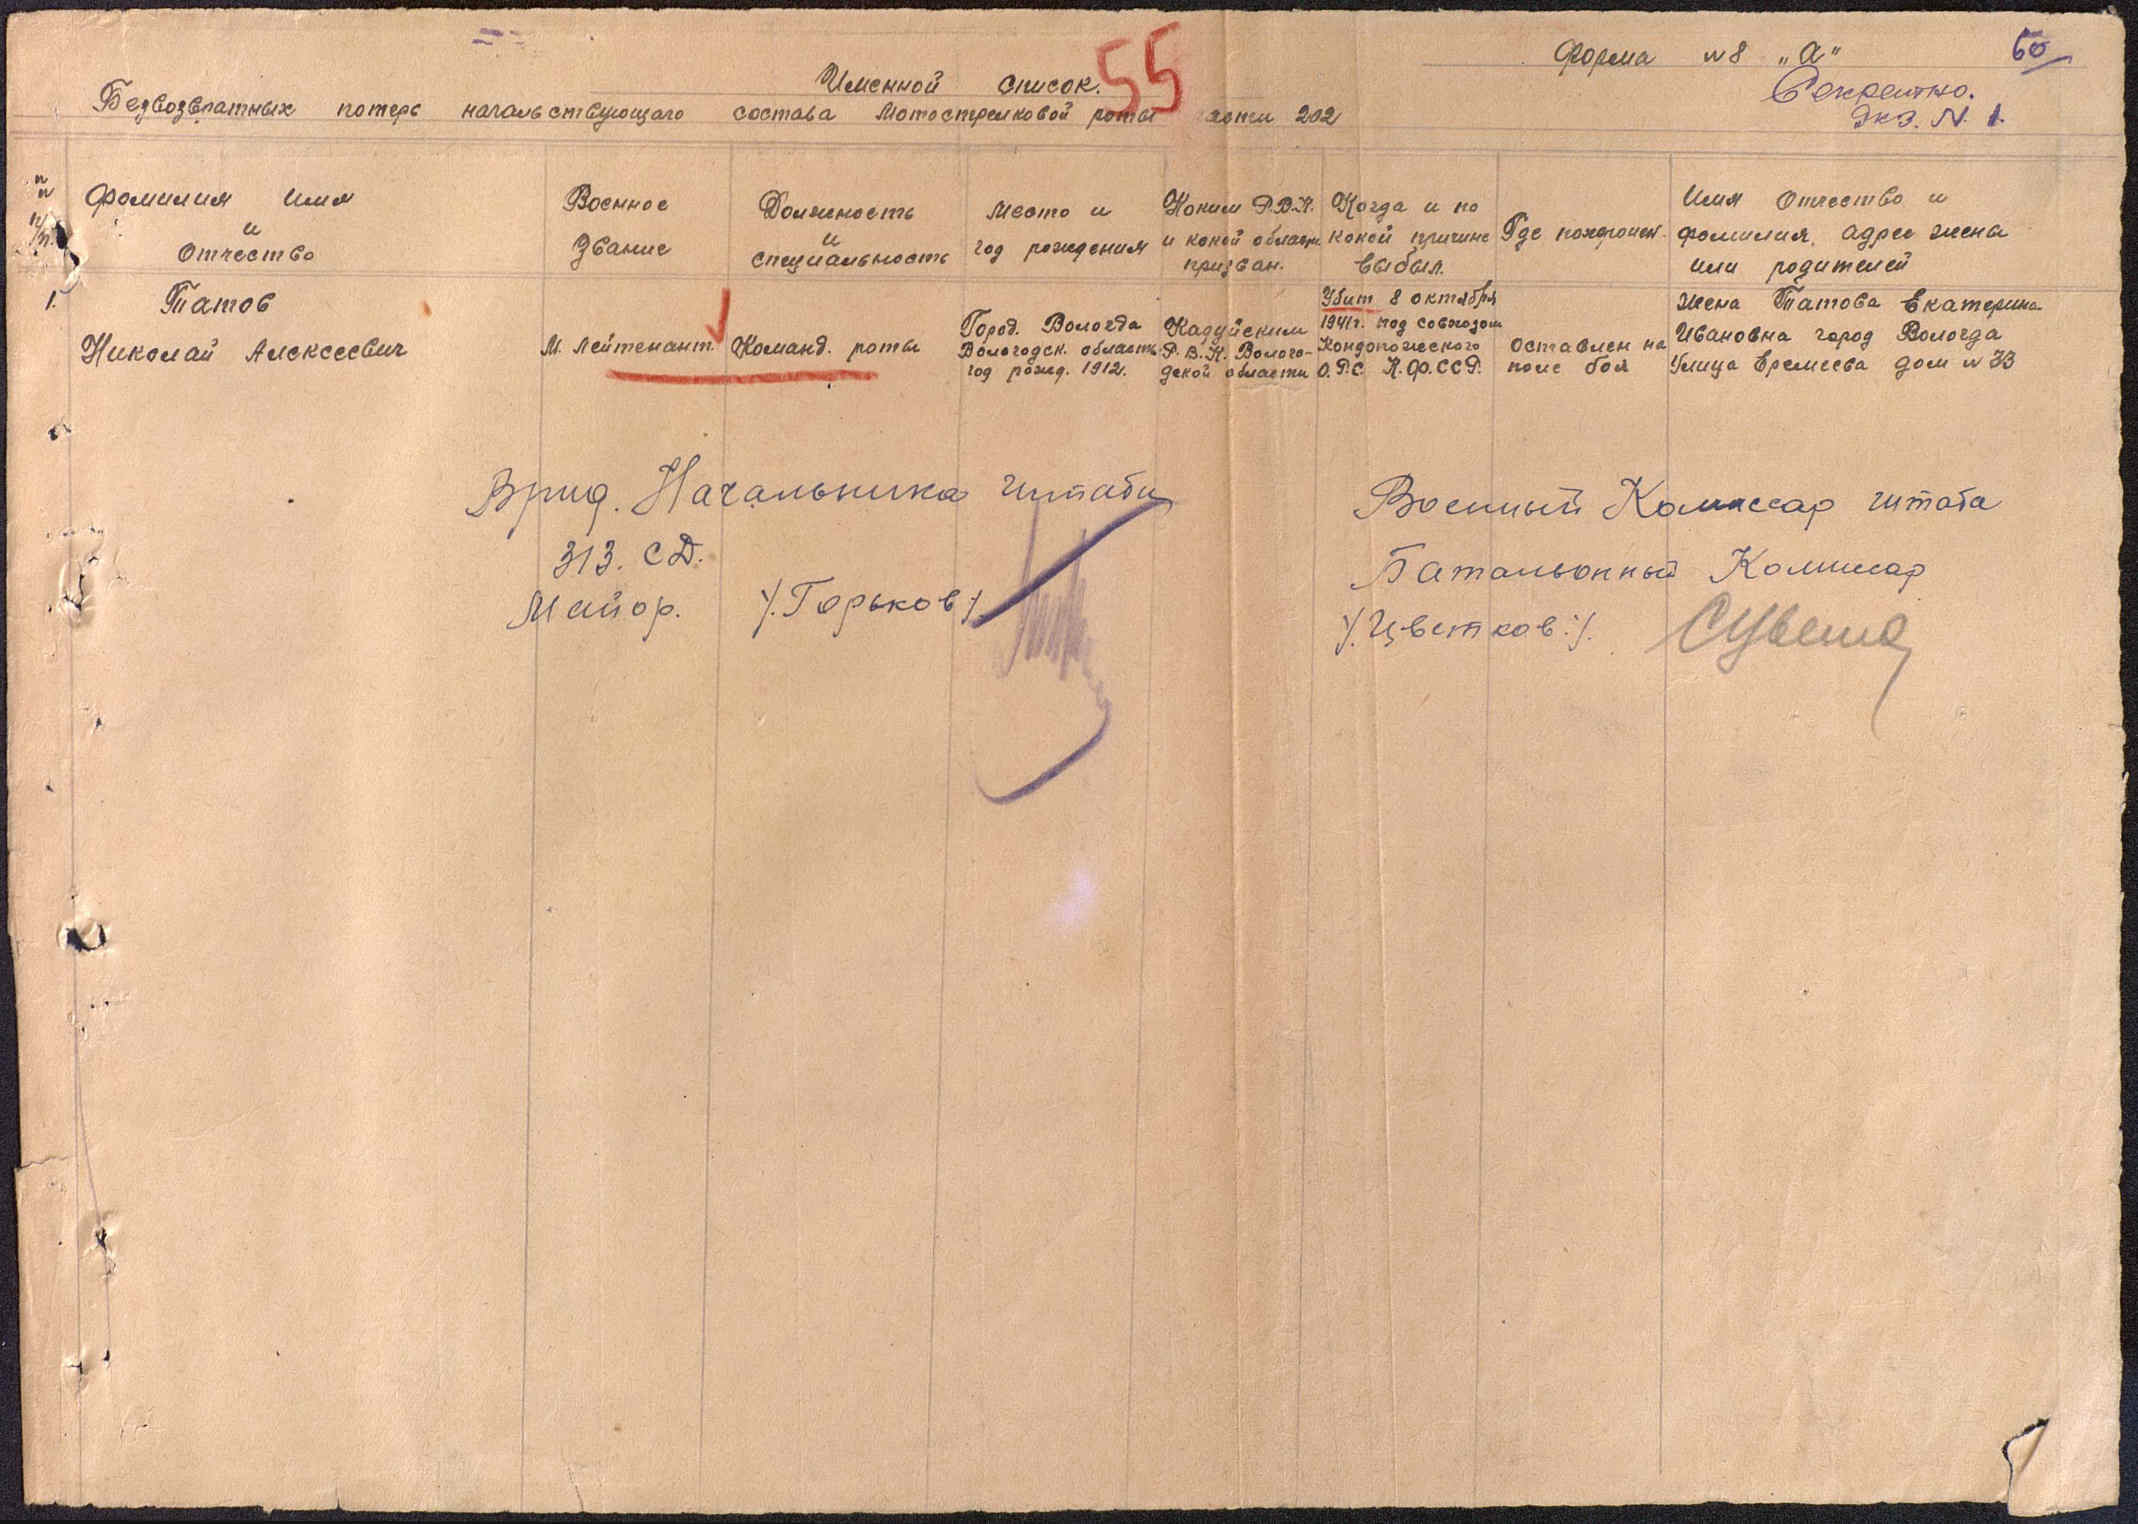 Форма №8 „А"
60
Секретно.
Экз. N. 1.
55
Именной список.
Безвозвратных потерь начальствующаго состава Мотострелковой роты части 202
№№ п/п.
Фамилия Имя
и
Отчество
Военное
Звание
Должность
и
специальность
Место и
год рождения
Каким Р.В.К.
и какой области
призван.
Когда и по
какой причине
выбыл.
Где похоронен.
Имя Отчество и
фамилия, адрес жены
или родителей
1.
Татов
Николай Алексеевич
М. Лейтенант.
Команд. роты
Город. Вологда
Вологодск. область
год рожд. 1912.
Кадуйским
Р.В.К. Волого-
дской области
Убит 8 октября
1941г. под совхозом
Кондопожского
К.Ф.ССР.
оставлен на
поле боя
жена Татова Екатерина
Ивановна город Вологда
Улица Еремеева дом №
Врид. Начальника штаба
313. СД.
Майор. /.Горьков/.
Военный Комиссар штаба
Батальонный Комиссар
/.Цветков./.